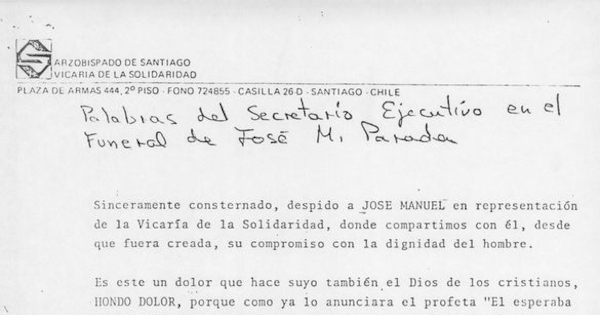 ARZOBISPADO DE SANTIAGO
VICARIA DE LA SOLIDARIDAD
PLAZA DE ARMAS 444, 2º PISO - FONO 724855 - CASILLA 26-D - SANTIAGO - CHILE
Palabras del Secretario Ejecutivo en el
Funeral de José M. Parada
Sinceramente consternado, despido a JOSE MANUEL en representación
de la Vicaría de la Solidaridad, donde compartimos con él, desde
que fuera creada, su compromiso con la dignidad del hombre.
Es este un dolor que hace suyo también el Dios de los cristianos,
HONDO DOLOR, porque como ya lo anunciara el profeta "El esperaba